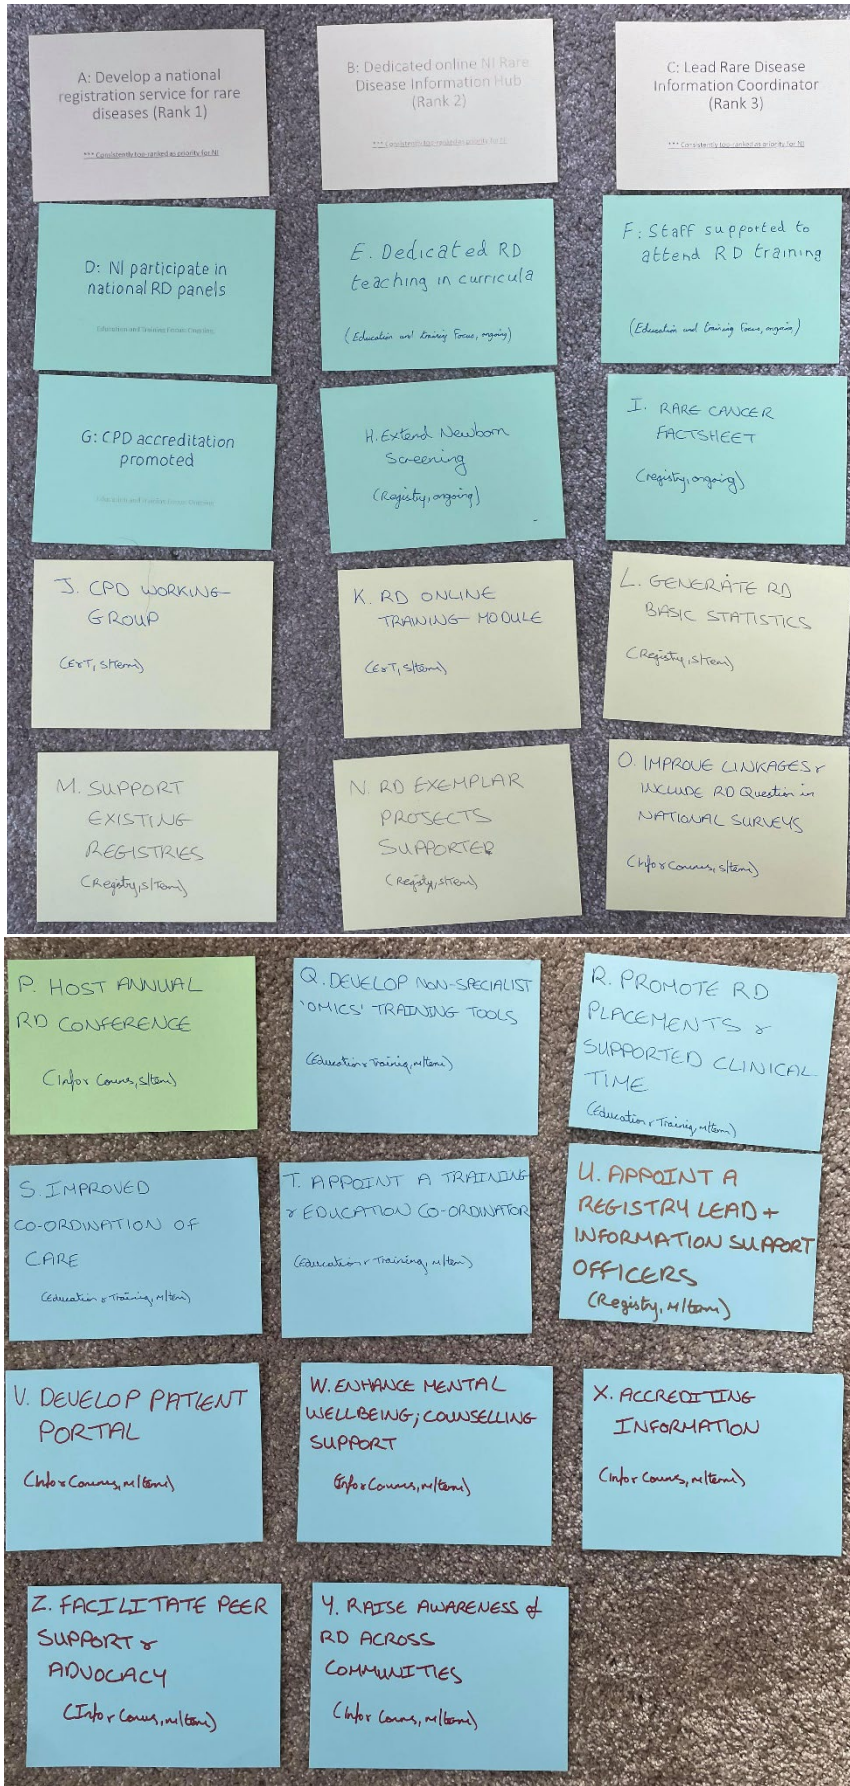 A: Develop a national
registration service for rare
diseases (Rank 1)
*** Consistently top-ranked as priority for NI
B: Dedicated online NI Rare
Disease Information Hub
(Rank 2)
*** Consistently top-ranked as priority for NI
C: Lead Rare Disease
Information Coordinator
(Rank 3)
*** Consistently top-ranked as priority for NI
D: NI participate in
national RD panels
Education and Training Focus Ongoing
E. Dedicated RD
teaching in curricula
(Education and training Focus, ongoing)
F: Staff supported to
attend RD training
(Education and training Focus, ongoing)
G: CPD accreditation
promoted
Education and Training Focus Ongoing
H. Extend Newborn
Screening
(Registry, ongoing)
I. RARE CANCER
FACTSHEET
(registry, ongoing)
J. CPD WORKING
GROUP
(E&T, S/Term)
K. RD ONLINE
TRAINING MODULE
(E&T, S/term)
L. GENERATE RD
BASIC STATISTICS
(Registry, S/Term)
M. SUPPORT
EXISTING
REGISTRIES
(Registry, S/Term)
N. RD EXEMPLAR
PROJECTS
SUPPORTED
(Registry, S/term)
O. IMPROVE LINKAGES &
INCLUDE RD Question in
NATIONAL SURVEYS
(Info & Comms, S/term)
P. HOST ANNUAL
RD CONFERENCE
(Info & Comms, S/term)
Q. DEVELOP NON-SPECIALIST
'OMICS' TRAINING TOOLS
(Education & Training, M/term)
R. PROMOTE RD
PLACEMENTS &
SUPPORTED CLINICAL
TIME
(Education & Training, M/term)
S. IMPROVED
CO-ORDINATION OF
CARE
(Education & Training, M/term)
T. APPOINT A TRAINING
& EDUCATION CO-ORDINATOR
(Education & Training, M/term)
U. APPOINT A
REGISTRY LEAD +
INFORMATION SUPPORT
OFFICERS
(Registry, M/term)
V. DEVELOP PATIENT
PORTAL
(Info & Comms, M/term)
W. ENHANCE MENTAL
WELLBEING; COUNSELLING
SUPPORT
(Info & Comms, M/term)
X. ACCREDITING
INFORMATION
(Info & Comms, M/term)
Z. FACILITATE PEER
SUPPORT &
ADVOCACY
(Info & Comms, M/term)
Y. RAISE AWARENESS of
RD ACROSS
COMMUNITIES
(Info & Comms, M/term)